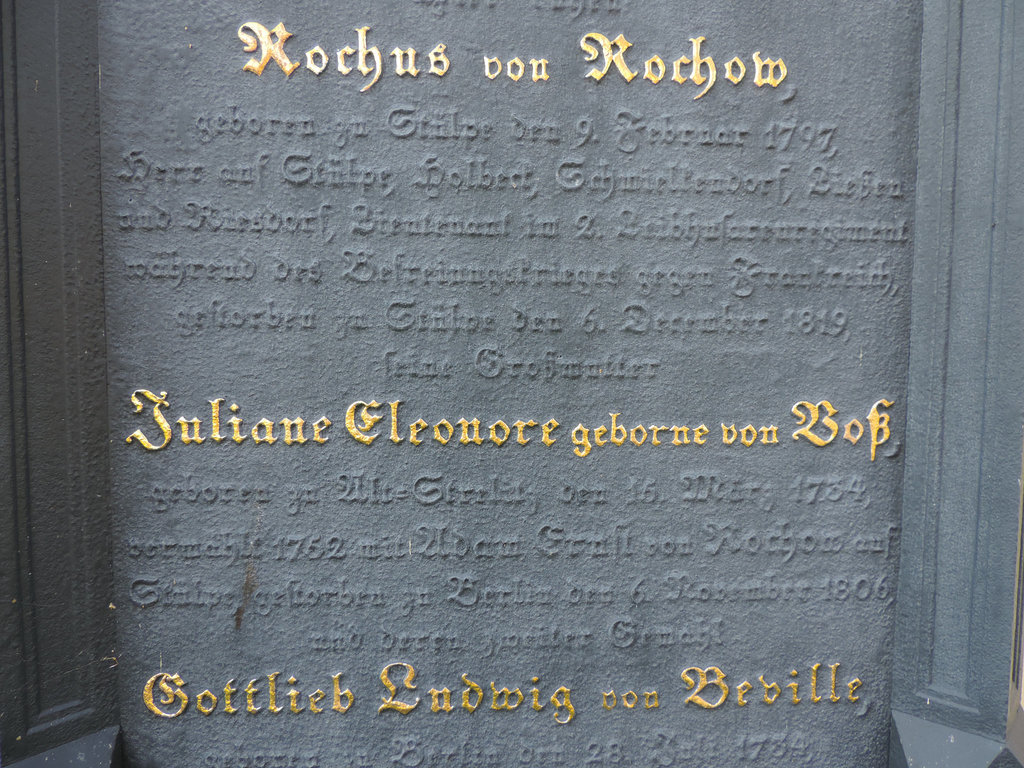 ruhen
Rochus von Rochow,
geboren zu Stülpe den 9. Februar 1797,
Herr auf Stülpe, Holbeck, Schmielkendorf, Ließen
und Riesdorf, Lieutenant im 2. Leibhusarenregiment
während des Befreiungskrieges gegen Frankreich,
gestorben zu Stülpe den 6. December 1819,
seine Großmutter
Juliane Eleonore geborne von Voß,
geboren zu Alt=Strelitz den 15. März 1734,
vermählt 1752 mit Adam Ernst von Rochow auf
Stülpe, gestorben zu Berlin den 6. November 1806,
und deren zweiter Gemahl
Gottlieb Ludwig von Beville,
geboren zu Berlin den 28. Juli 1734,